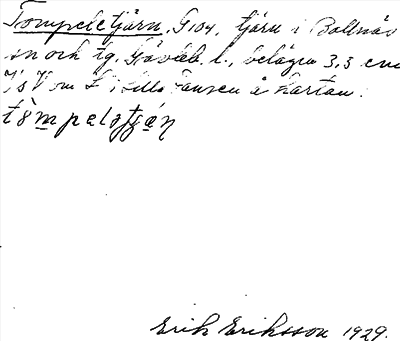 Tompeletjärn, G104, tjärn i Bollnäs
sn och tg. Gävleb. l., belägen 3,3 cm
V om L i Lilla på kartan.
tòmpelətjæ̣ṇ
Erik Eriksson 1929.